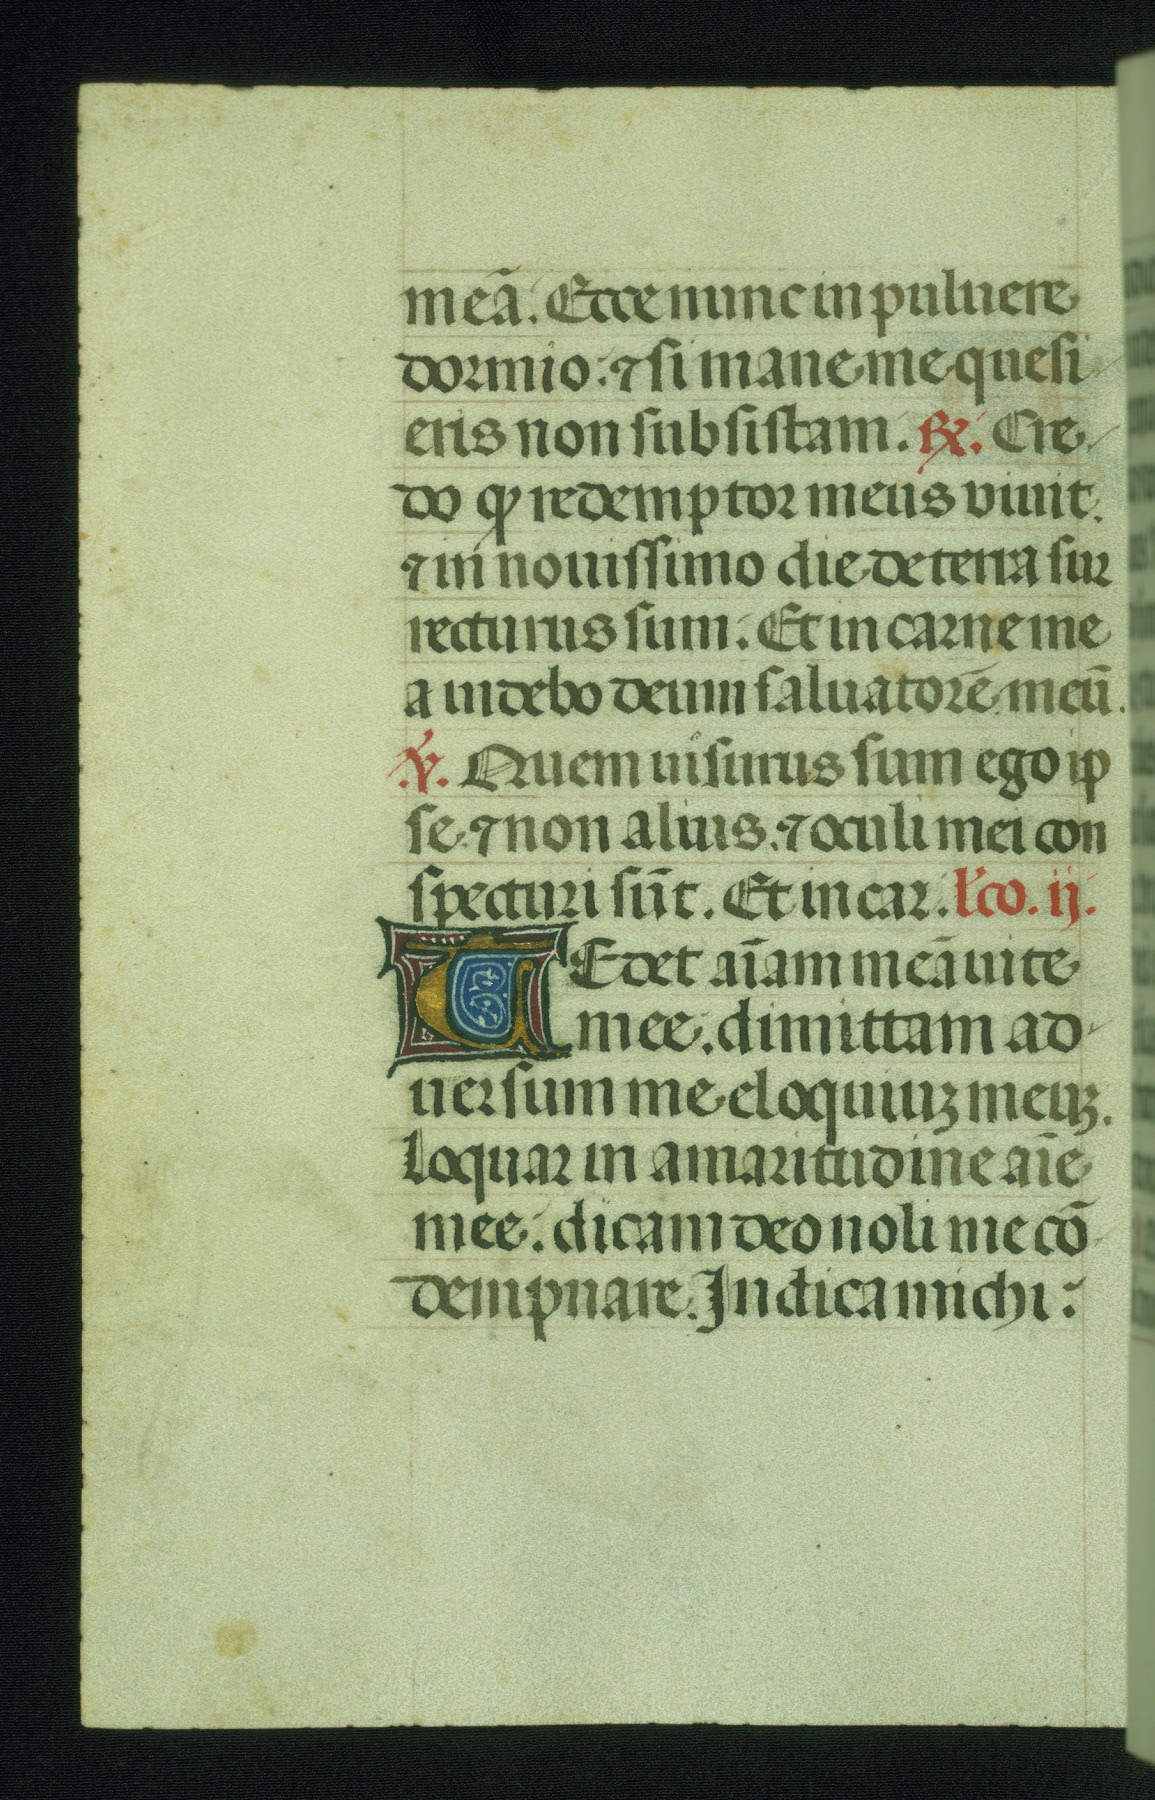 meā. Ecce nunc in puluere
dormio: ⁊ si mane me quesi
eris non subsistam. ℟. Cre
do ꝙ redemptor meus viuit.
⁊ in nouissimo die de terra sur
recturus sum. Et in carne me
a uidebo deum saluatorē meū.
℣. Quem uisurus sum ego ip
se ⁊ non alius. ⁊ oculi mei con
specturi sūt. Et in car. l'co. ij.
TEdet aīam meā uite
mee. dimittam ad
uersum me eloquiuꝫ meuꝫ.
Loquar in amaritudine aīe
mee. dicam deo noli me cō
dempnare. Indica michi: